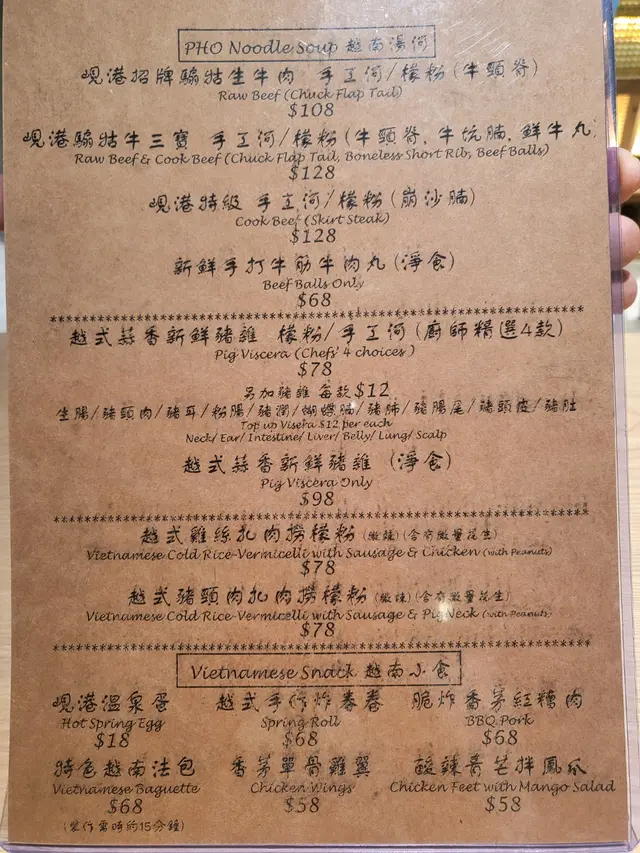 PHO Noodle Soup 越南湯河
峴港招牌騸牯生牛肉 手工河/檬粉 (牛頸脊)
Raw Beef (Chuck Flap Tail)
$108
峴港騸牯牛三寶 手工河/檬粉 (牛頸脊, 牛坑腩, 鮮牛丸)
Raw Beef & Cook Beef (Chuck Flap Tail, Boneless Short Rib, Beef Balls)
$128
峴港特級 手工河/檬粉 (崩沙腩)
Cook Beef (Skirt Steak)
$128
新鮮手打牛筋牛肉丸 (淨食)
Beef Balls Only
$68
越式蒜香新鮮豬雜 檬粉/手工河 (廚師精選4款)
Pig Viscera (Chefs' 4 choices)
$78
另加豬雜 每款 $12
生腸/豬頭肉/豬耳/粉腸/豬潤/蝴蝶腩/豬肺/豬腸尾/豬頭皮/豬肚
Top up Visera $12 per each
Neck/ Ear/ Intestine/ Liver/ Belly/ Lung/ Scalp
越式蒜香新鮮豬雜 (淨食)
Pig Viscera Only
$98
越式雞絲扎肉撈檬粉 (微辣) (含有微量花生)
Vietnamese Cold Rice-Vermicelli with Sausage & Chicken (with Peanuts)
$78
越式豬頸肉扎肉撈檬粉 (微辣) (含有微量花生)
Vietnamese Cold Rice-Vermicelli with Sausage & Pig Neck (with Peanuts)
$78
Vietnamese Snack 越南小食
峴港溫泉蛋 越式手作炸春卷 脆炸香茅紅糟肉
Hot Spring Egg Spring Roll BBQ Pork
$18 $68 $68
特色越南法包 香茅單骨雞翼 酸辣青芒拌鳳爪
Vietnamese Baguette Chicken Wings Chicken Feet with Mango Salad
$68 $58 $58
(製作需時約15分鐘)